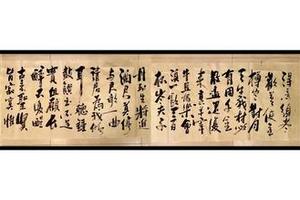 得意須盡
歡莫使金
樽空對月
天生我材必
有用千金
散盡還復
來烹羊宰
牛且爲樂會
須一飲三百
杯岑夫子
丹丘生將進
酒君莫停
與君歌一曲
請君爲我傾
耳聽鐘
鼓饌玉不足
貴但願長
醉不復醒
古來聖賢
皆寂寞惟